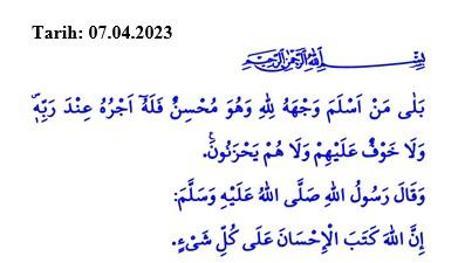 Tarih: 07.04.2023
بِسْمِ اللّٰهِ الرَّحْمٰنِ الرَّحِيمِ
بَلٰى مَنْ اَسْلَمَ وَجْهَهُ لِلّٰهِ وَهُوَ مُحْسِنٌ فَلَهُٓ اَجْرُهُ عِنْدَ رَبِّهِۖ
وَلَا خَوْفٌ عَلَيْهِمْ وَلَا هُمْ يَحْزَنُونَ۟.
وَقَالَ رَسُولُ اللهِ صَلَّى اللهُ عَلَيْهِ وَسَلَّمَ:
إِنَّ اللهَ كَتَبَ الْإِحْسَانَ عَلَى كُلِّ شَيْءٍ.